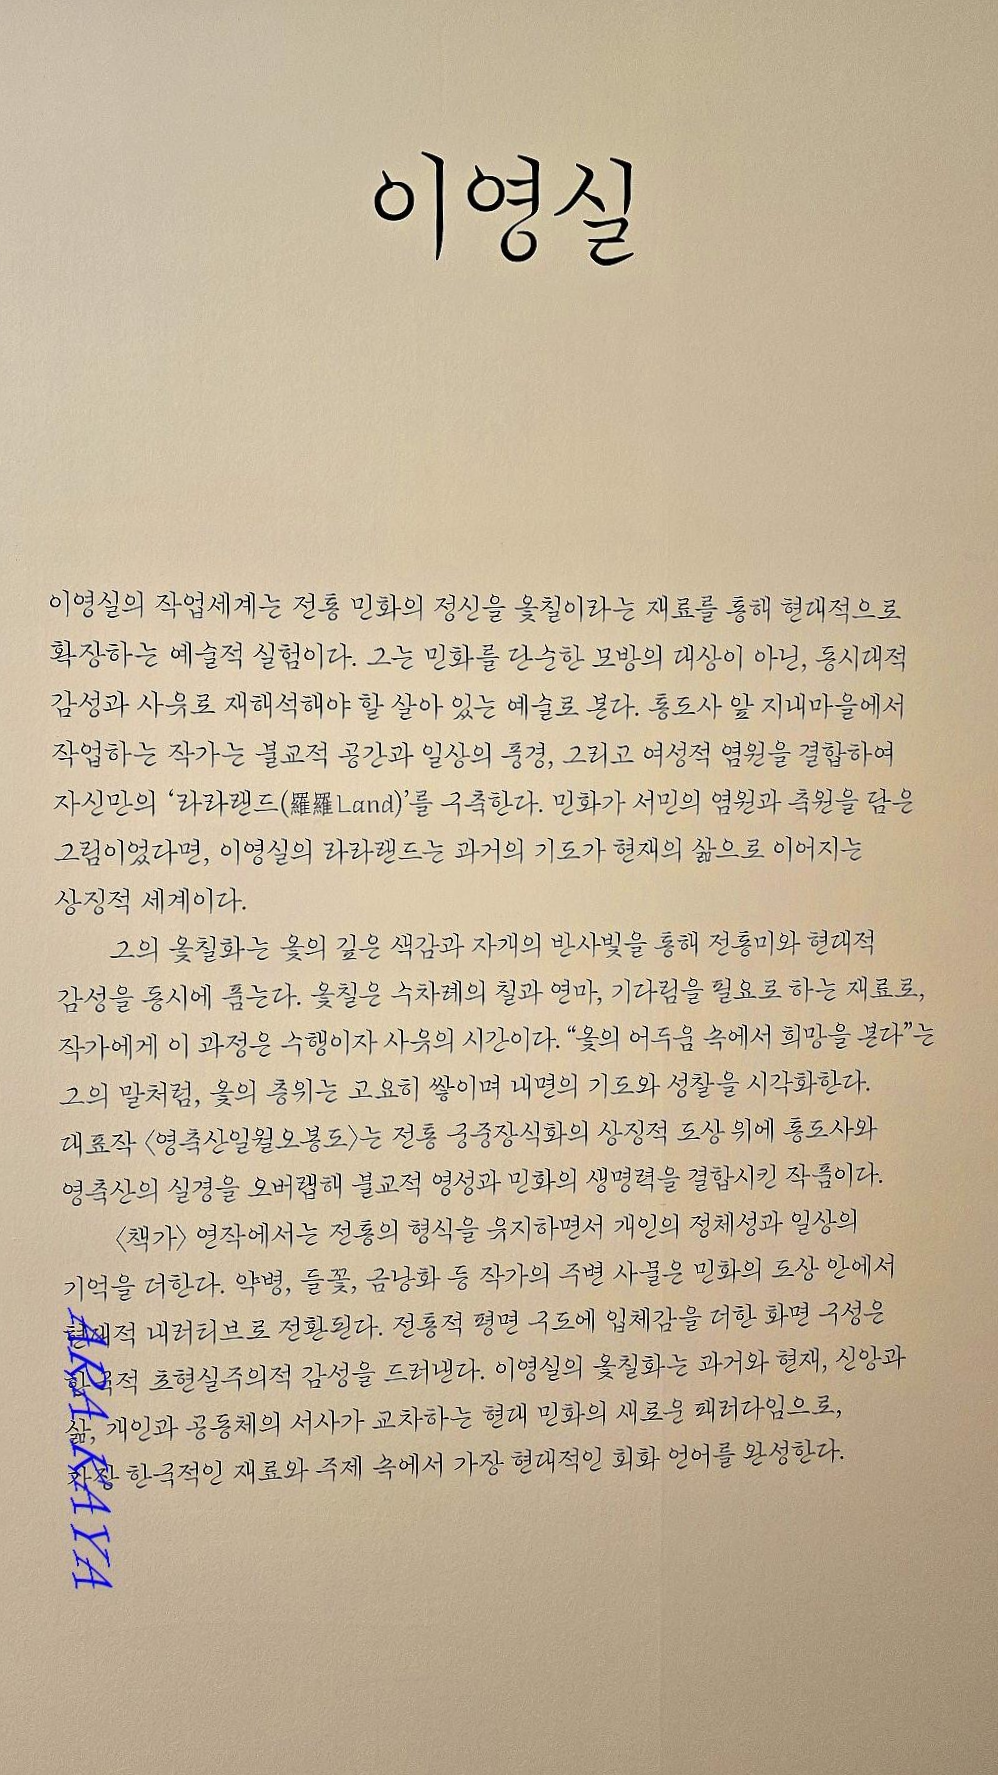 이영실
이영실의 작업세계는 전통 민화의 정신을 옻칠이라는 재료를 통해 현대적으로
확장하는 예술적 실험이다. 그는 민화를 단순한 모방의 대상이 아닌, 동시대적
감성과 사유로 재해석해야 할 살아 있는 예술로 본다. 통도사 앞 지내마을에서
작업하는 작가는 불교적 공간과 일상의 풍경, 그리고 여성적 염원을 결합하여
자신만의 ‘라라랜드(羅羅Land)’를 구축한다. 민화가 서민의 염원과 축원을 담은
그림이었다면, 이영실의 라라랜드는 과거의 기도가 현재의 삶으로 이어지는
상징적 세계이다.
그의 옻칠화는 옻의 깊은 색감과 자개의 반사빛을 통해 전통미와 현대적
감성을 동시에 품는다. 옻칠은 수차례의 칠과 연마, 기다림을 필요로 하는 재료로,
작가에게 이 과정은 수행이자 사유의 시간이다. “옻의 어두움 속에서 희망을 본다”는
그의 말처럼, 옻의 층위는 고요히 쌓이며 내면의 기도와 성찰을 시각화한다.
대표작 〈영축산일월오봉도〉는 전통 궁중장식화의 상징적 도상 위에 통도사와
영축산의 실경을 오버랩해 불교적 영성과 민화의 생명력을 결합시킨 작품이다.
〈책가〉 연작에서는 전통의 형식을 유지하면서 개인의 정체성과 일상의
기억을 더한다. 약병, 들꽃, 금낭화 등 작가의 주변 사물은 민화의 도상 안에서
현대적 내러티브로 전환된다. 전통적 평면 구도에 입체감을 더한 화면 구성은
한국적 초현실주의적 감성을 드러낸다. 이영실의 옻칠화는 과거와 현재, 신앙과
삶, 개인과 공동체의 서사가 교차하는 현대 민화의 새로운 패러다임으로,
가장 한국적인 재료와 주제 속에서 가장 현대적인 회화 언어를 완성한다.
ARAKAYA